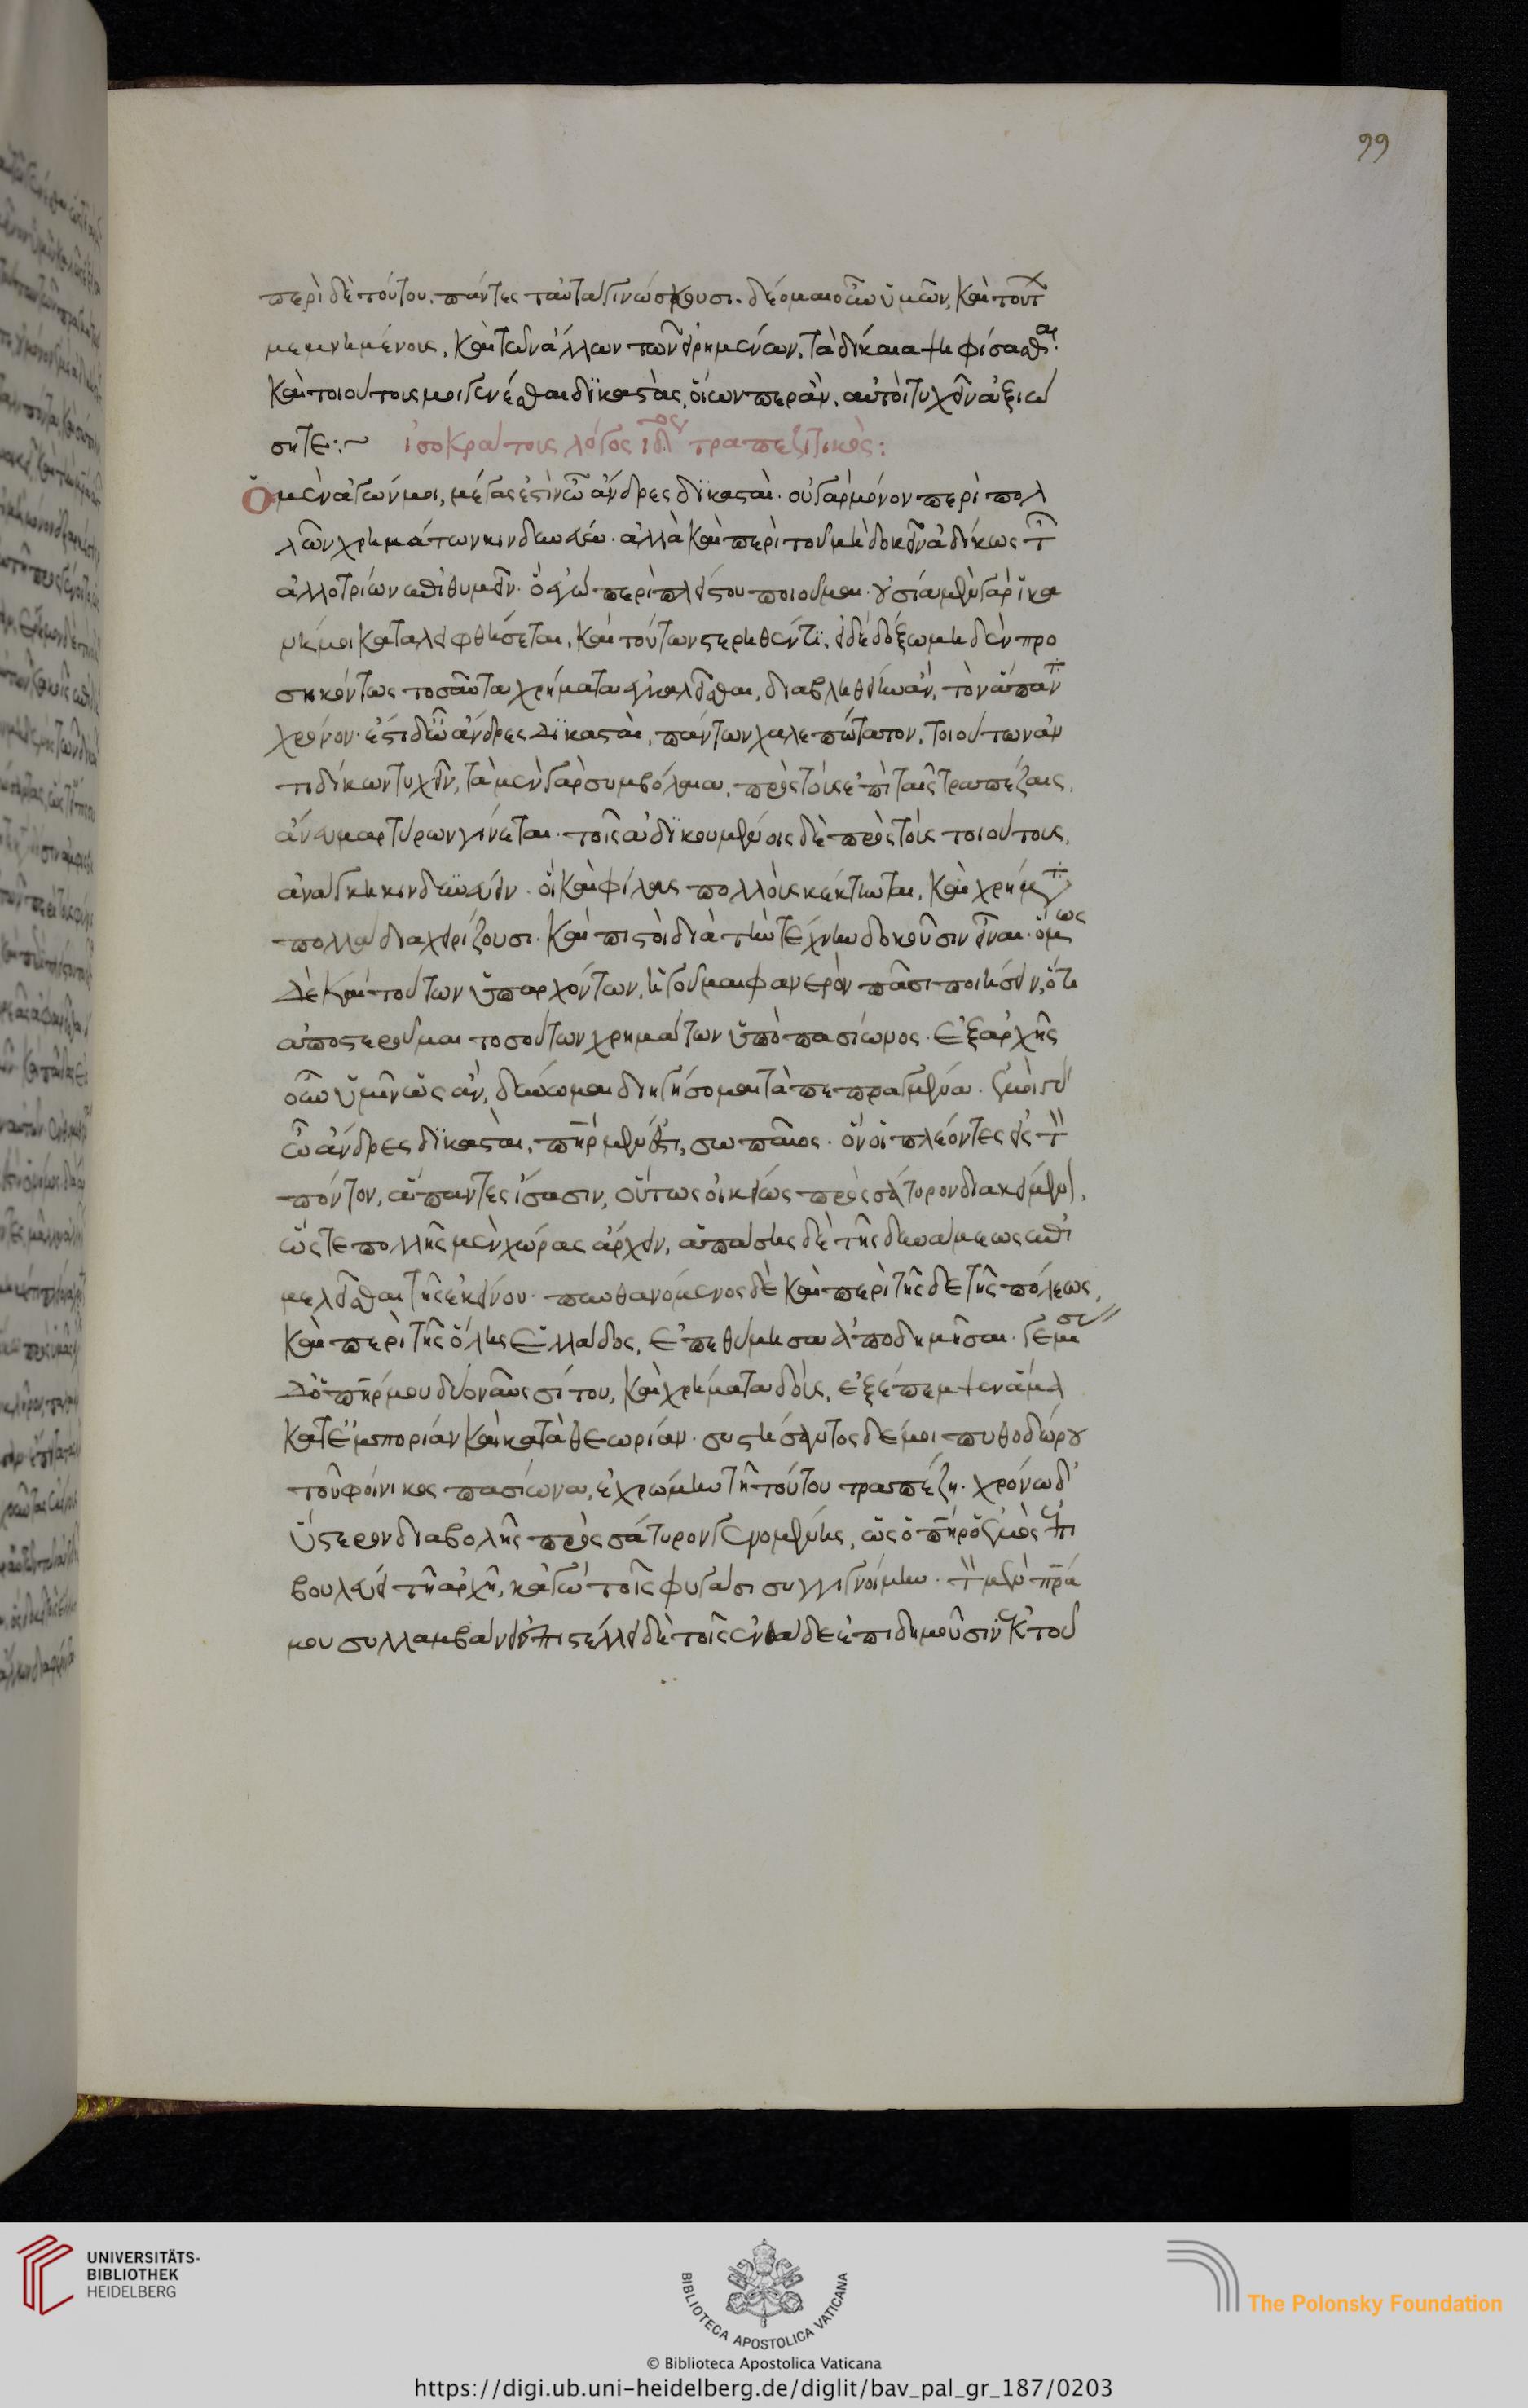 99
περὶ δὲ τούτου. πάντες ταῦτα γινώσκουσι. δέομαι οὖν ὑμῶν, καὶ τούτ
μεμνημένους, καὶ τῶν ἄλλων τῶν εἰρημένων, τὰ δίκαια ψηφίσασθαι.
καὶ τοιούτους μοι γενέσθαι δϊκαστὰς, οἵων περ ἂν, αὐτοὶ τυχεῖν ἀξιώ
σητε:~ ἰσοκράτους λόγος τραπεζιτικὸς:
Ὁ μὲν ἀγών μοι, μέγας ἐστὶν ὦ ἄνδρες δϊκασταὶ. οὐ γὰρ μόνον περὶ πολ
λῶν χρημάτων κινδυνεύω. ἀλλὰ καὶ περὶ τοῦ μὴ δοκεῖν ἀδίκως τ
ἀλλοτρίων ἐπιθυμεῖν. ὃ ἐγὼ περὶ πλείστου ποιοῦμαι. οὐσία μὲν γὰρ ἱκα
μή μοι καταλειφθήσεται, καὶ τούτων στερηθέντϊ, εἰ δὲ δόξω μηδὲν προ
σηκόντως τοσαῦτα χρήματα ἐγκαλεῖσθαι, διαβληθείην ἂν, τὸν ἅπαντ
χρόνον. ἔστι δ ὦ ἄνδρες δϊκασταὶ, πάντων χαλεπώτατον, τοιούτων ἀν
τιδίκων τυχεῖν, τὰ μὲν γὰρ συμβόλαια, πρὸς τοὺς ἐπὶ ταῖς τραπέζαις,
ἄνευ μαρτύρων γίνεται. τοῖς ἀδϊκουμένοις δὲ πρὸς τοὺς τοιούτους,
ἀνάγκη κινδυνεύειν. οἳ καὶ φίλους πολλοὺς κέκτηνται, καὶ χρήματ
πολλὰ διαχειρίζουσι. καὶ πιστοὶ διὰ τὴν τέχνην δοκοῦσιν εἶναι. ὅμως
δὲ καὶ τούτων ὑπαρχόντων, ἡγοῦμαι φανερὸν πᾶσι ποιήσειν, ὅτι
ἀποστεροῦμαι τοσούτων χρημάτων ὑπὸ πασίωνος. ἐξ ἀρχῆς
οὖν ὑμῖν ὡς ἂν, δύνωμαι διηγήσομαι τὰ πεπραγμένα. ἐμοὶ γὰρ
ὦ ἄνδρες δϊκασταὶ, πηρ μέν ἐστι, σωπαῖος. ὃν οἱ πλέοντες εἰς τ
πόντον, ἅπαντες ἴσασιν, οὕτως οἰκείως πρὸς σάτυρον διακείμεν,
ὥστε πολλῆς μὲν χώρας ἄρχειν, ἁπάσης δὲ τῆς δυνάμεως ἐπι
μελεῖσθαι τῆς ἐκείνου. πυνθανόμενος δὲ καὶ περὶ τῆσδε τῆς πόλεως,
καὶ περὶ τῆς ὅλης Ἑλλάδος, ἐπεθύμησα ἀποδημῆσαι. γεμί
δ ὁ πηρ μου δύο ναῦς σίτου, καὶ χρήματα δοὺς, ἐξέπεμψεν ἅμα
κατ ἐμπορίαν καὶ κατὰ θεωρίαν. συστήσαντος δέ μοι πυθοδώρου
τοῦ φοίνικος πασίωνα, ἐχρώμην τῇ τούτου τραπέζῃ. χρόνω δ
ὕστερον διαβολῆς πρὸς σάτυρον γενομένης, ὡς ὁ πηρ ὁ ἐμὸς ἐπι
βουλεύει τῇ ἀρχῇ, κἀγὼ τοῖς φυγάσι συγγιγνοίμην. τ μὲν πρα
μου συλλαμβάνει ἐπιστέλλει δὲ τοῖς ἐνθάδε ἐπιδημοῦσιν ἐκ τοῦ
UNIVERSITÄTS-
BIBLIOTHEK
HEIDELBERG
BIBLIOTECA APOSTOLICA VATICANA
The Polonsky Foundation
© Biblioteca Apostolica Vaticana
https://digi.ub.uni-heidelberg.de/diglit/bav_pal_gr_187/0203